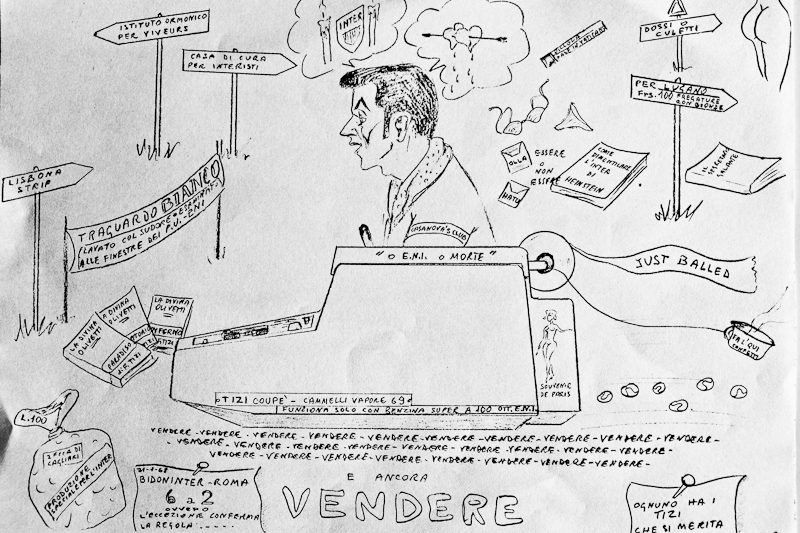 ISTITUTO ORMONICO
PER VIVEURS
CASA DI CURA
PER INTERISTI
INTER
TIZI
DOSSI O
CULETTI
PER LUGANO
FRS. 100 FREGATURE
CON BIONDE
LISBONA
STRIP
TRAGUARDO BIANCO
LAVATO COL SUDORE
ALLE FINESTRE DEI P.V. ENI
OLLA
HATU
ESSERE
O
NON
ESSERE
COME
DIMENTICARE
L'INTER
DI
HEINSTEIN
SALATE
CASANOVA'S CLUB
" O E.N.I. O MORTE "
JUST BALLED
FA L'QUI
CONFETTI
LA DIVINA
OLIVETTI
LA DIVINA
OLIVETTI
LA DIVINA
OLIVETTI
INFERNO
TIZI
PARADISO
DI R. TIZI
SOUVENIR
DE PARIS
TIZI COUPE' - CAMMELLI VAPORE 69
FUNZIONA SOLO CON BENZINA SUPER A 100 OTT. E.N.I.
VENDERE - VENDERE - VENDERE - VENDERE - VENDERE - VENDERE - VENDERE - VENDERE - VENDERE - VENDERE -
- VENDERE - VENDERE - VENDERE - VENDERE - VENDERE - VENDERE - VENDERE - VENDERE - VENDERE -
VENDERE - VENDERE - VENDERE - VENDERE - VENDERE - VENDERE - VENDERE - VENDERE -
E ANCORA
VENDERE
L. 100
ZECCA DI
CAGLIARI
PRODUZIONE
SPECIALE PER L'INTER
21-1-68
BIDONINTER - ROMA
6 a 2
OVVERO
L'ECCEZIONE CONFERMA
LA REGOLA .....
OGNUNO HA I
TIZI
CHE SI MERITA